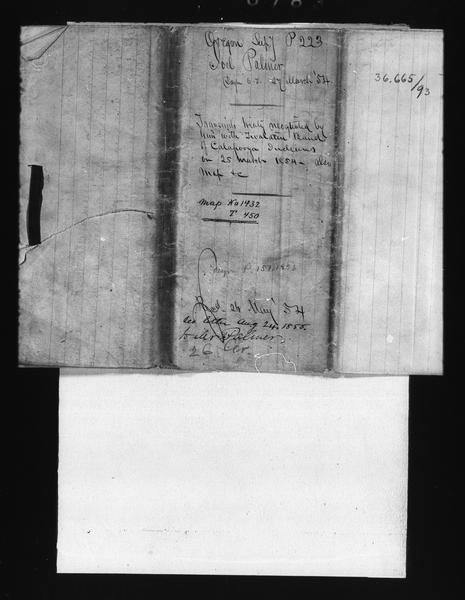 Oregon Supy P 223
Joel Palmer
27 March '54
36.665/93
Transmits treaty negotiated by
him with Twalatin Band
of Calapooya Indians
on 25 March 1854 - also
Map &c
Map No 1432
T 450
Recd. 26 May '54
See letter Aug 24. 1855.
to Mr Palmer
26